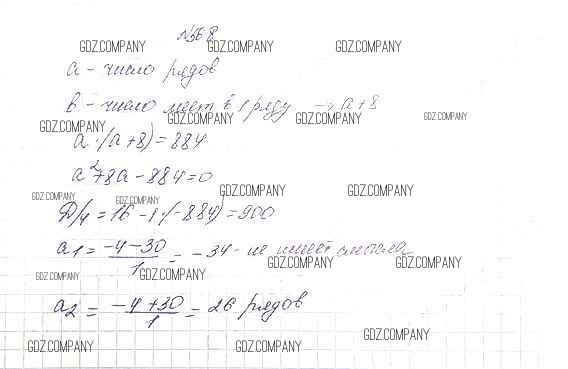 №568
GDZ.COMPANY GDZ.COMPANY GDZ.COMPANY
a - число рядов
b - число мест в 1 ряду → a+8
GDZ.COMPANY GDZ.COMPANY GDZ.COMPANY GDZ.COMPANY
a·(a+8)=884
a²+8a-884=0
GDZ.COMPANY GDZ.COMPANY GDZ.COMPANY GDZ.COMPANY
D/4=16-1·(-884)=900
a1 = (-4-30)/1 = -34 - не имеет смысла
GDZ.COMPANY GDZ.COMPANY
GDZ.COMPANY GDZ.COMPANY
a2 = (-4+30)/1 = 26 рядов
GDZ.COMPANY GDZ.COMPANY GDZ.COMPANY